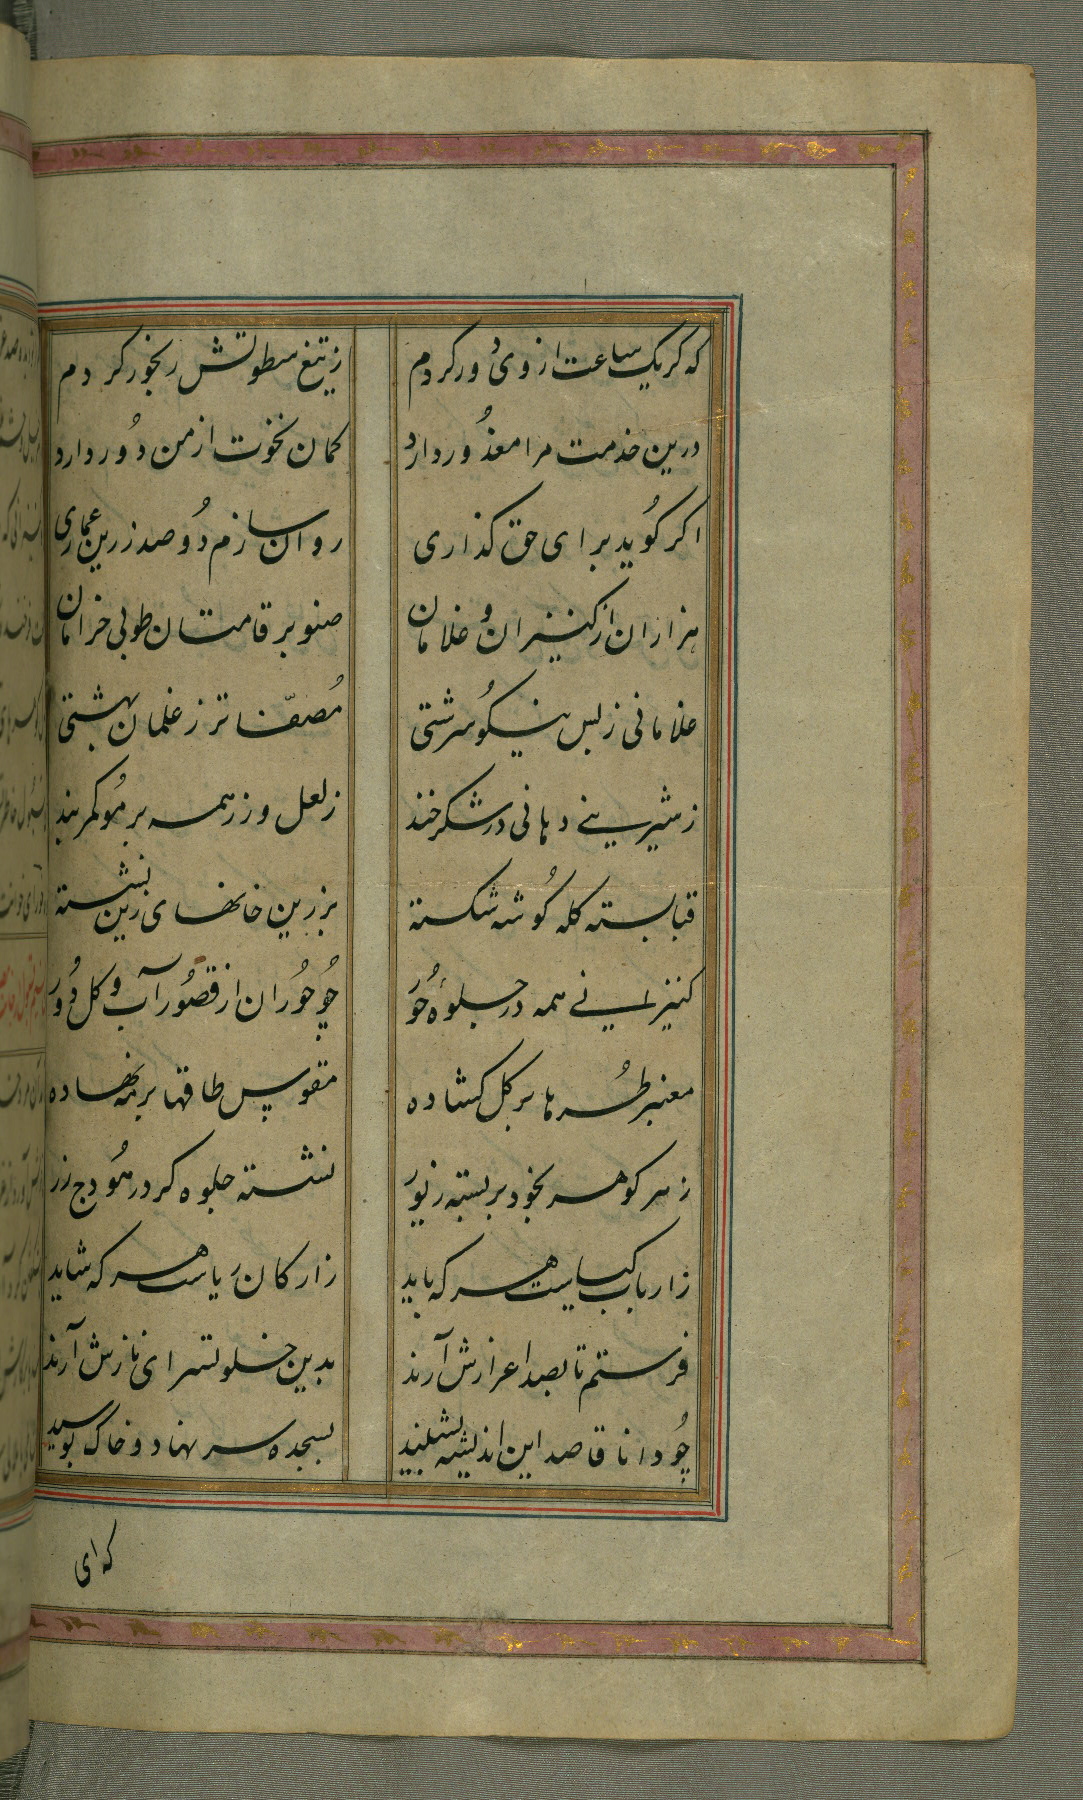 که گر یک ساعت از وی دور گردم ز تیغ سطوتش رنجور گردم
درین خدمت مرا معذور دارد کمان نخوت از من دور دارد
اگر گوید برای حق گذاری روان سازم دو صد زرین عماری
هزاران از کنیزان و غلامان صنوبر قامتان طوبی خرامان
غلامانی ز بس نیکو سرشتی مصفا تر ز غلمان بهشتی
ز شیرینی دهانی در شکر خند ز لعل و زر همه بر مو کمر بند
قبا بسته کله گوشه شکسته بزرین خانهای زین نشسته
کنیزانی همه در جلوه حور چو حوران از قصور آب و گل دور
معنبر طرها بر گل گشاده مقوس طاقها بر مه نهاده
ز هر گوهر بخود بر بسته زیور نشسته جلوه گر در هودج زر
ز ارباب کیاست هر که باید ز ارکان ریاست هر که شاید
فرستم تا بصد اعزازش آرند بدین خلوتسرای نازش آرند
چو دانا قاصد این اندیشه بشنید بسجده سر نهاد و خاک بوسید
که ای